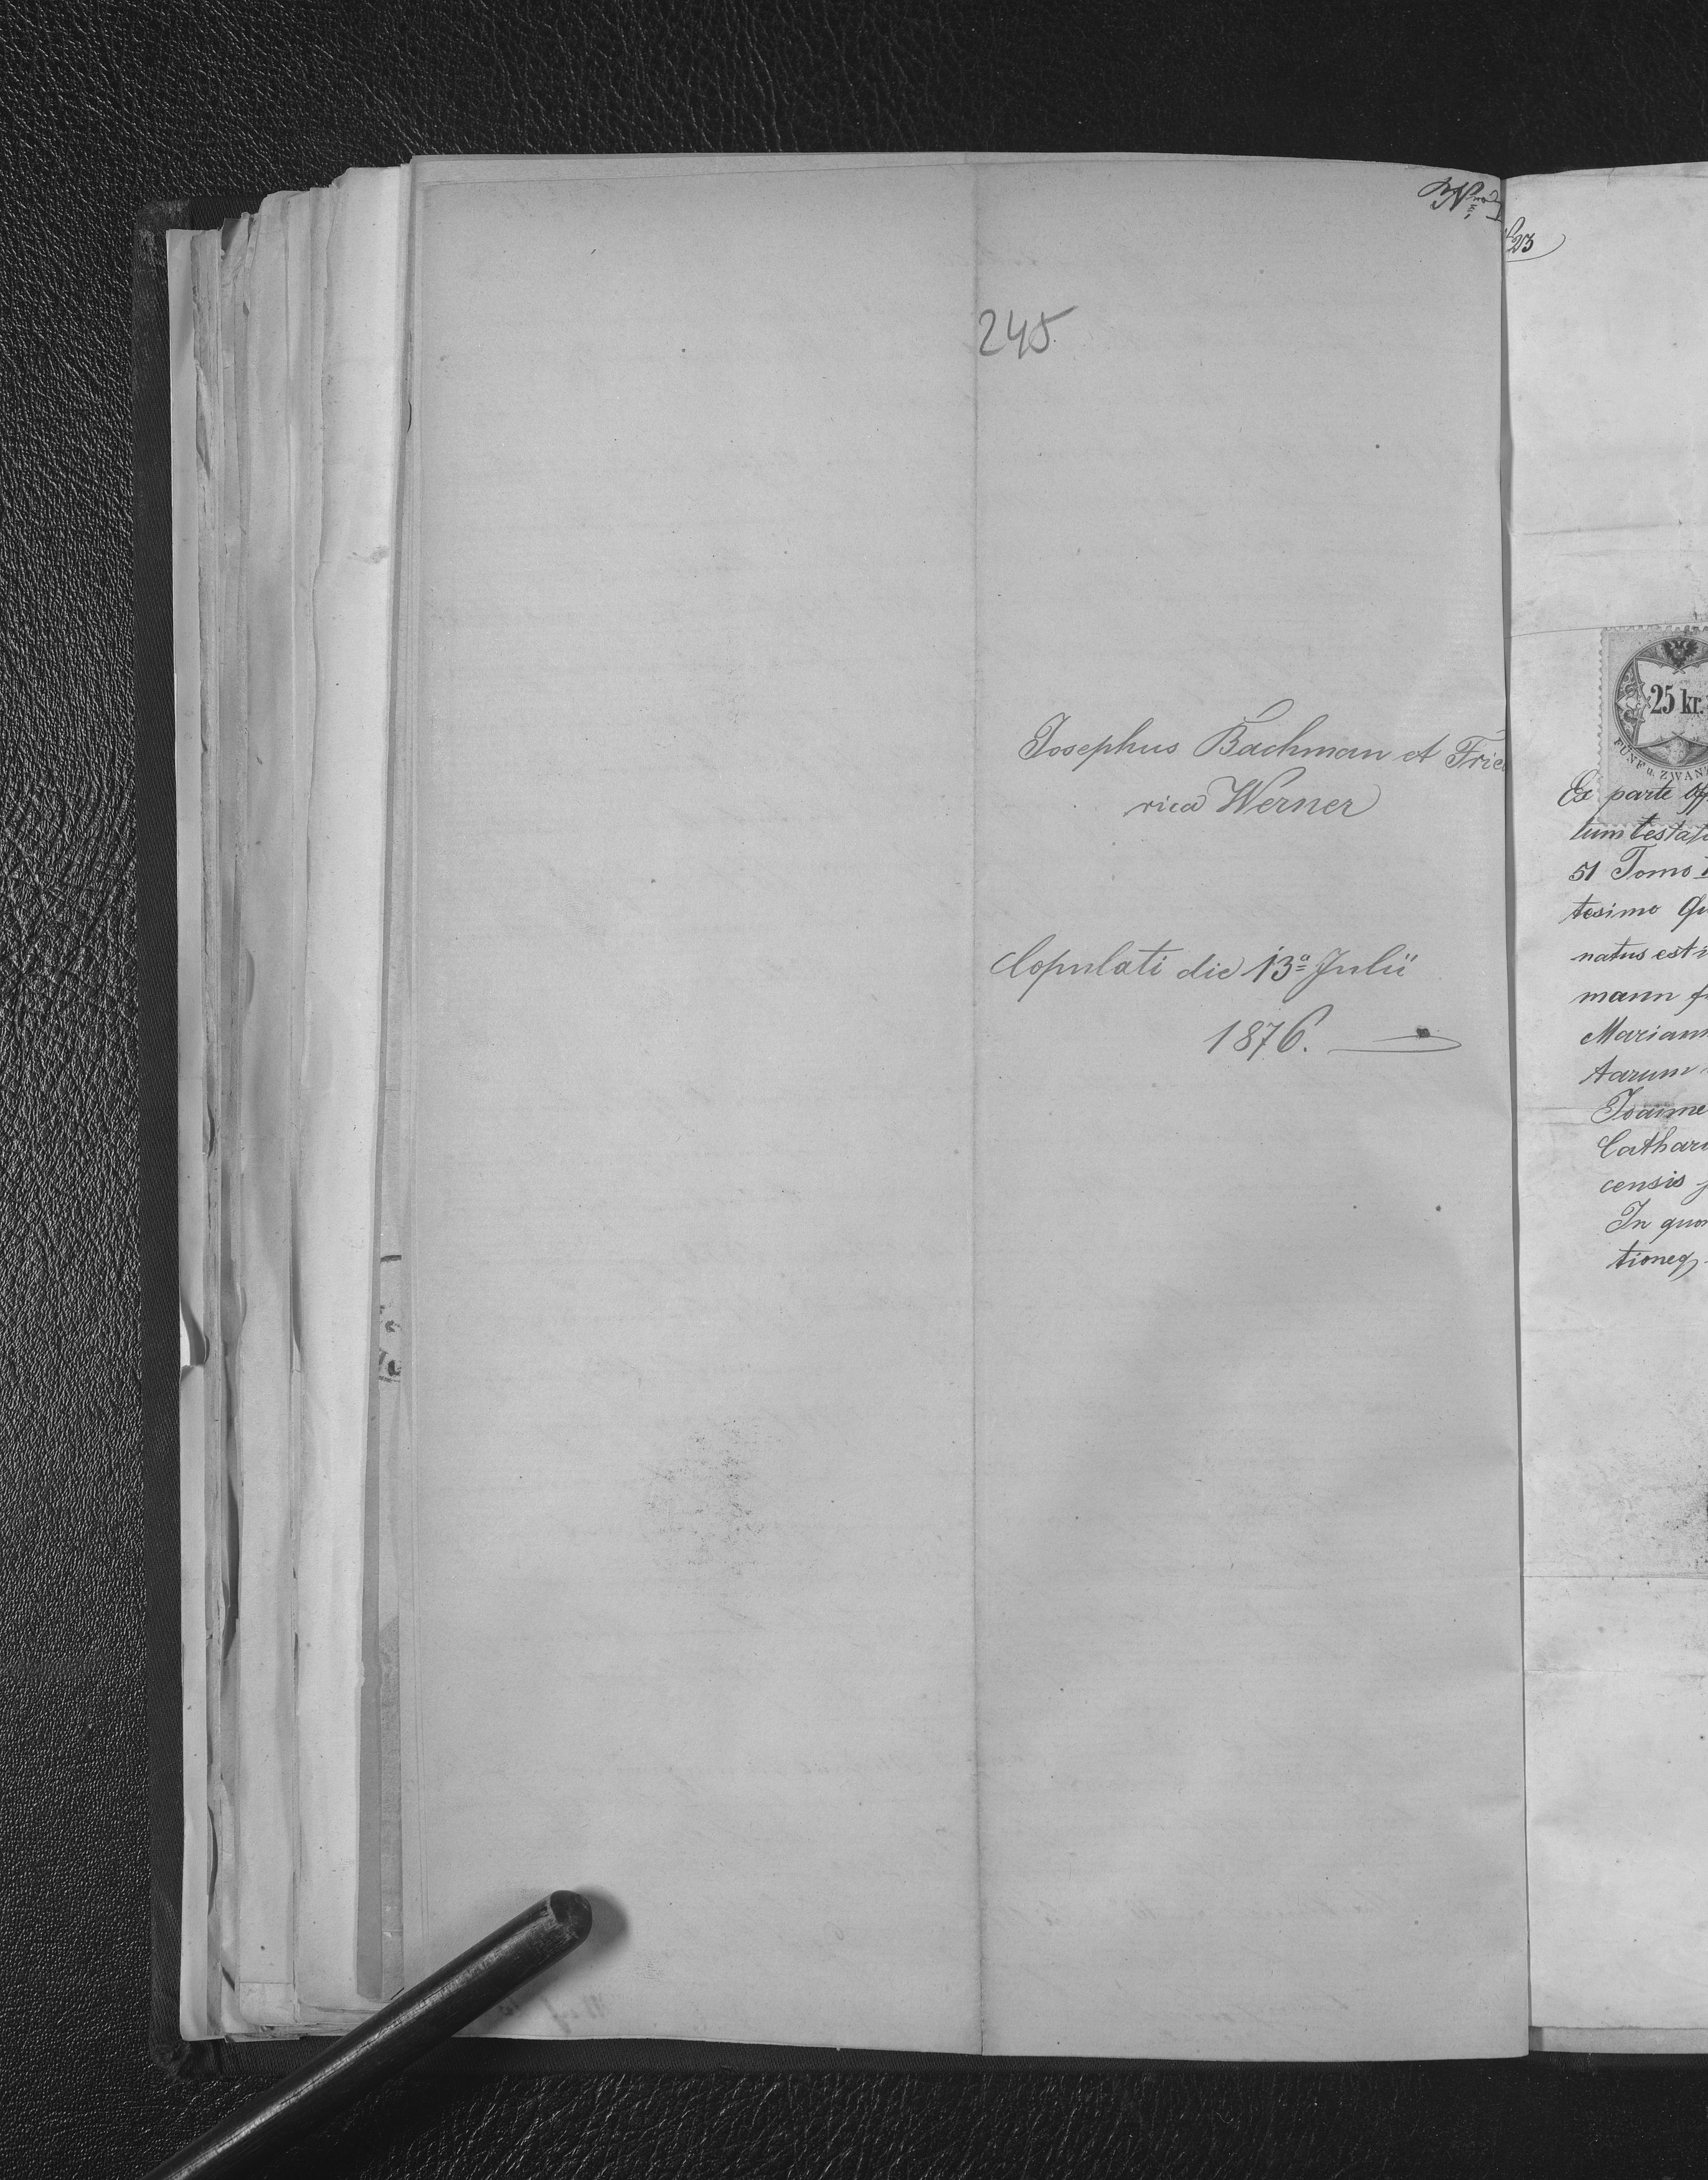 245
Josephus Bachman et Fried
rica Werner
Copulati die 13ª Julii
1876.
23
25 kr.
FÜNF u. ZWAN
Ex parte Off
tum testat
51 Tomo
tesimo Qu
natus est
mann
Mariann
tarum
Joanne
Cathari
censis
In quor
tioneq